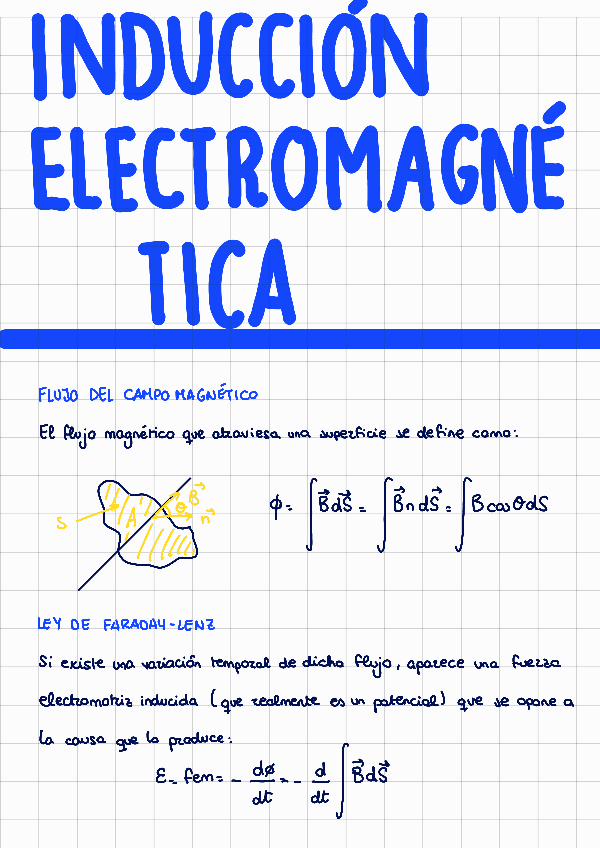 INDUCCIÓN
ELECTROMAGNÉ
TICA
FLUJO DEL CAMPO MAGNÉTICO
El flujo magnético que atraviesa una superficie se define como:
S A θ B⃗ n⃗
ϕ = ∫ B⃗ dS⃗ = ∫ B⃗ n dS⃗ = ∫ B cos θ dS
LEY DE FARADAY-LENZ
Si existe una variación temporal de dicho flujo, aparece una fuerza
electromotriz inducida (que realmente es un potencial) que se opone a
la causa que lo produce:
ε = fem = - dϕ/dt = - d/dt ∫ B⃗ dS⃗